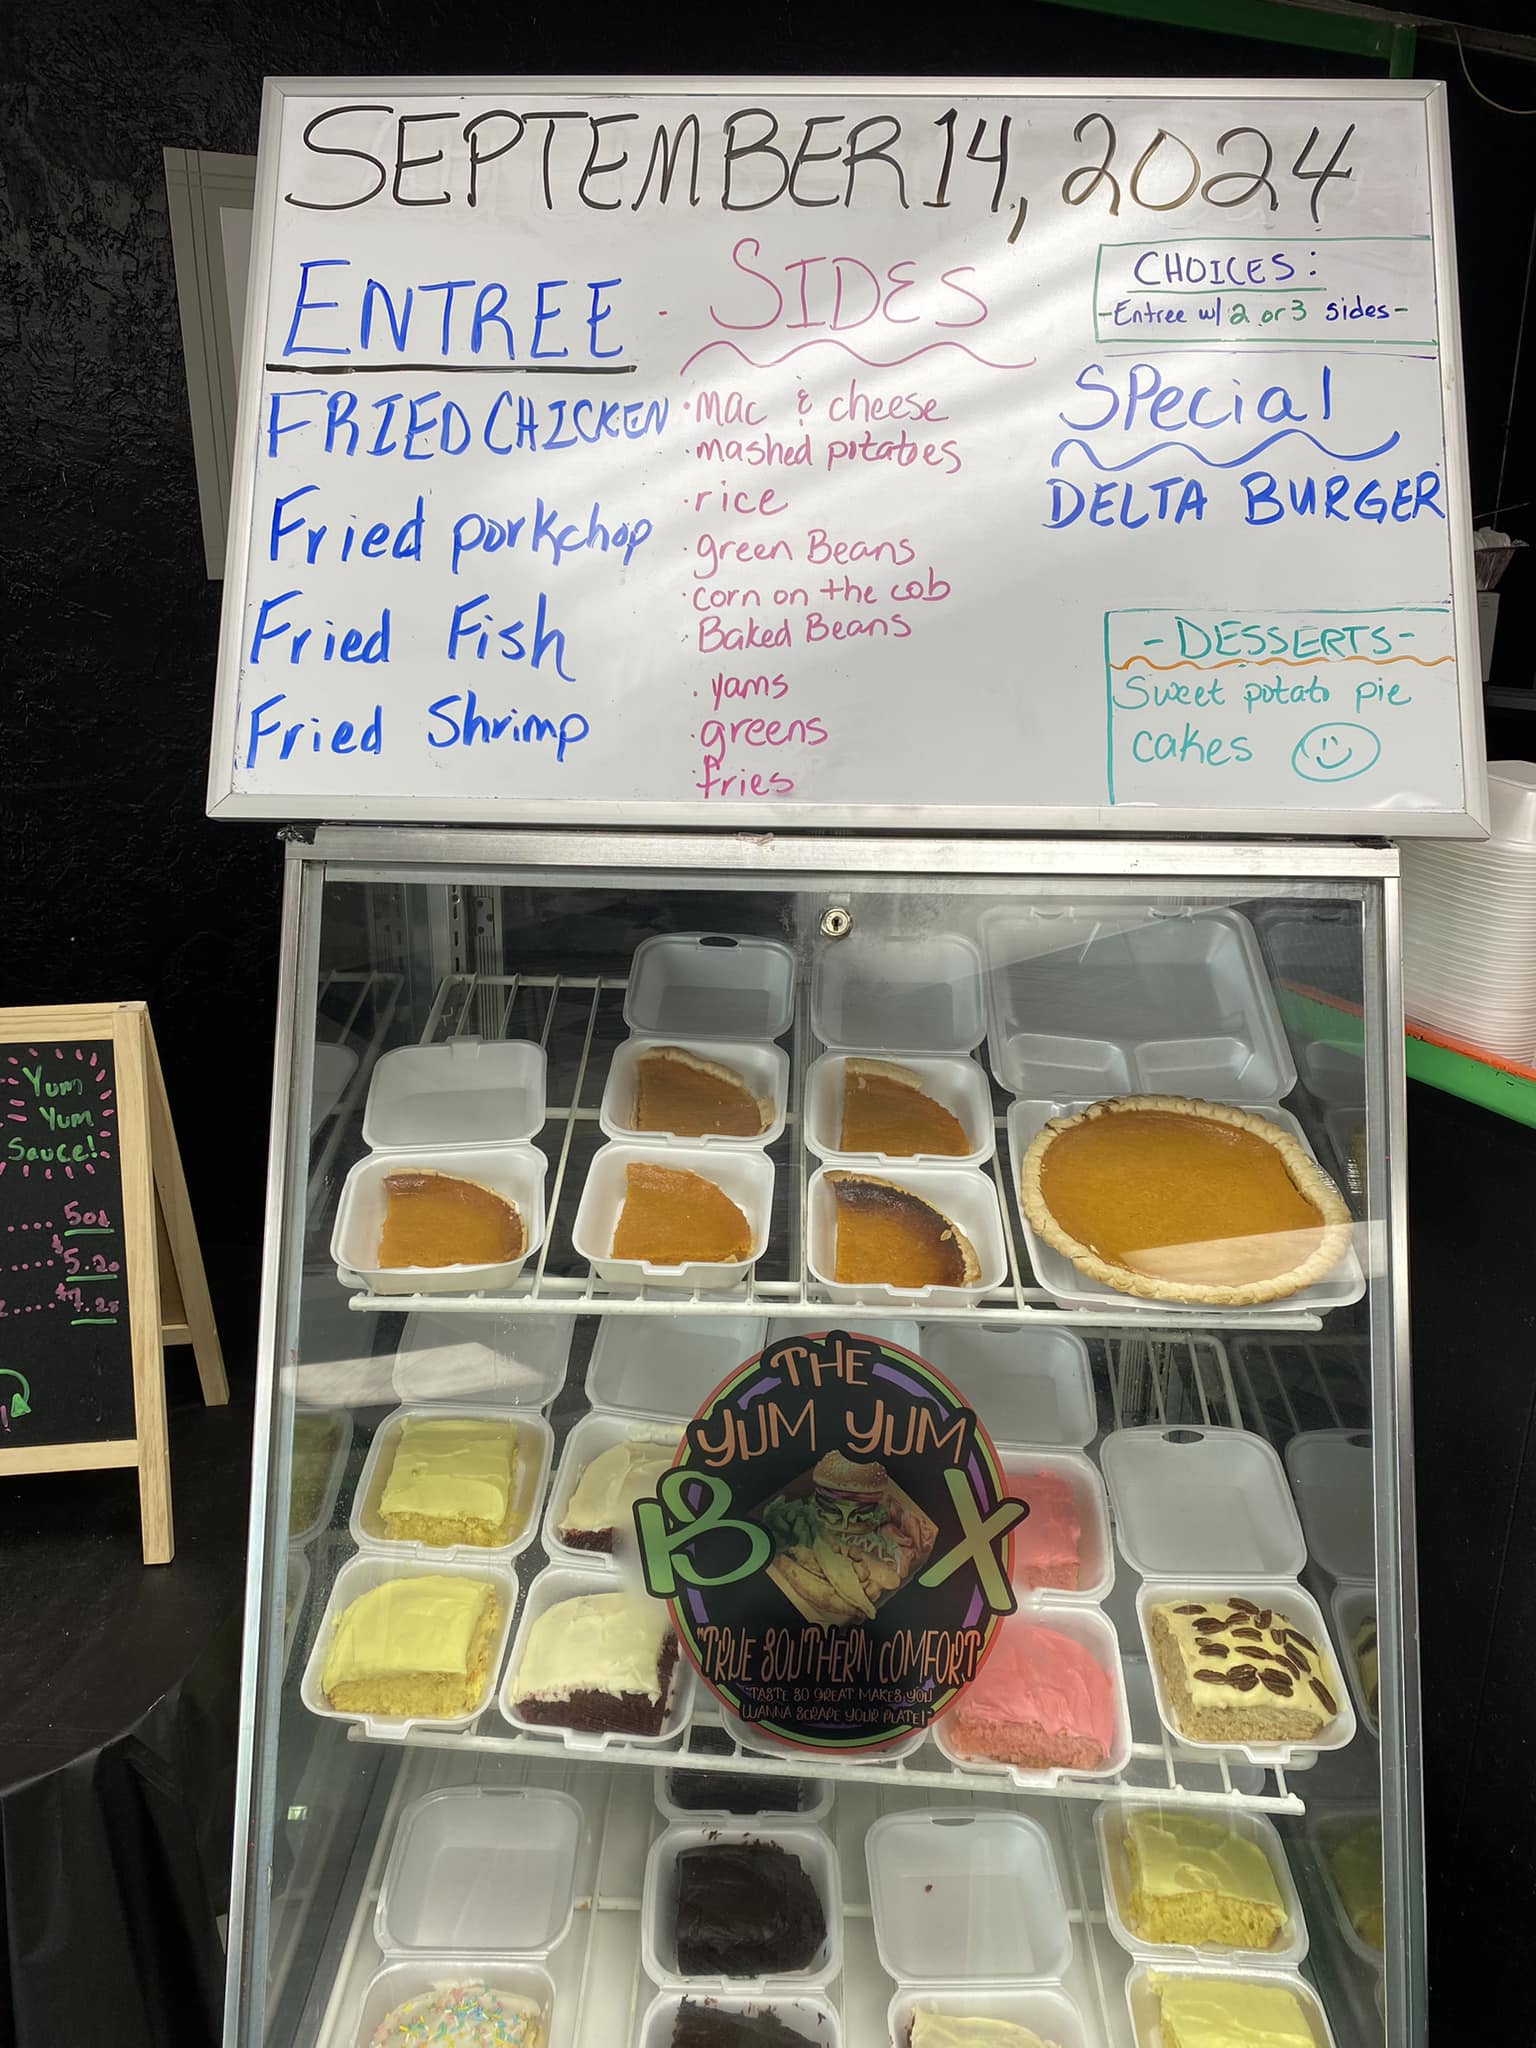 SEPTEMBER 14, 2024
ENTREE
FRIED CHICKEN
Fried porkchop
Fried Fish
Fried Shrimp
SIDES
· mac & cheese
· mashed potatoes
· rice
· green Beans
· corn on the cob
· Baked Beans
· yams
· greens
· fries
CHOICES:
-Entree w/ 2 or 3 sides-
SPecial
DELTA BURGER
-DESSERTS-
Sweet potato pie
cakes
Yum
Yum
Sauce!
.... 50¢
.... $5.20
.... $7.25
THE
YUM YUM
BOX
"TRUE SOUTHERN COMFORT"
"TASTE SO GREAT MAKES YOU
WANNA SCRAPE YOUR PLATE!"